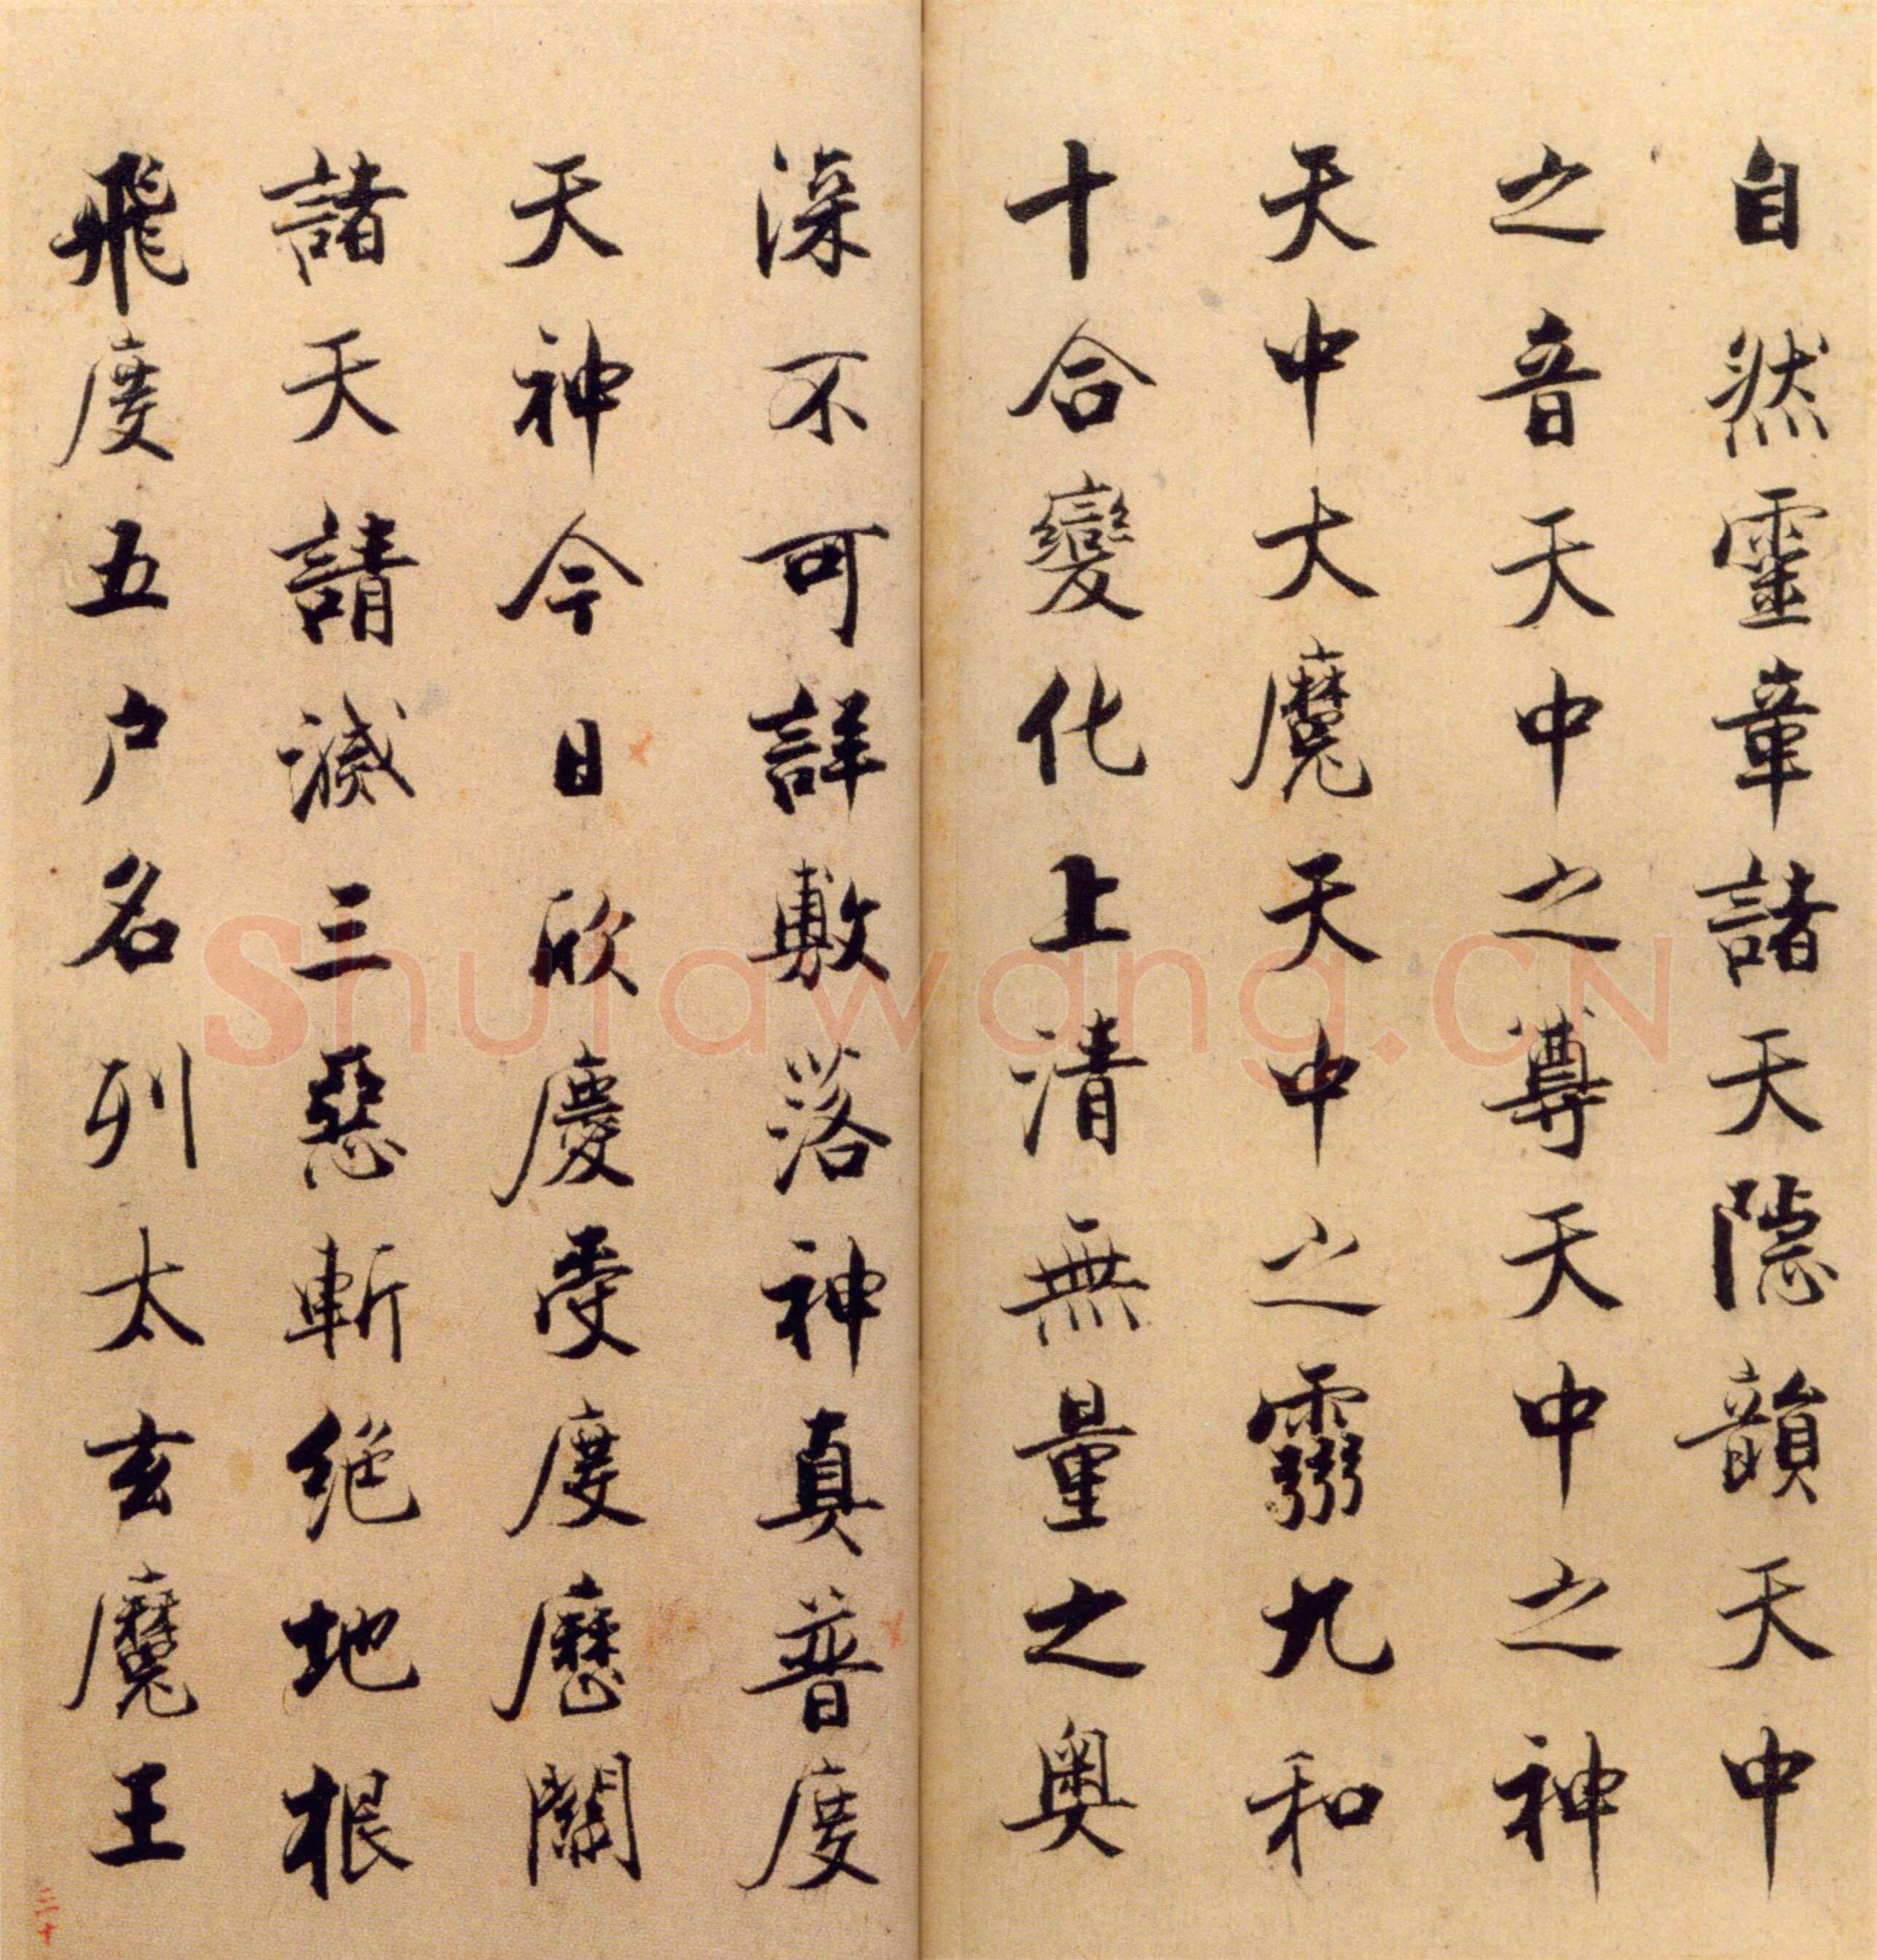 自然靈章諸天隱韻天中
之音天中之尊天中之神
天中大魔天中之靈九和
十合變化上清無量之奥
深不可詳敷落神真普度
天神今日欣慶受度歷關
諸天請滅三惡斬絕地根
飛度五户名列太玄魔王
Shufawang.CN